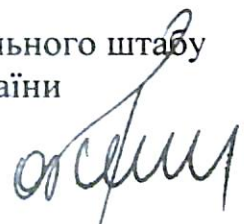 льного штабу
аїни